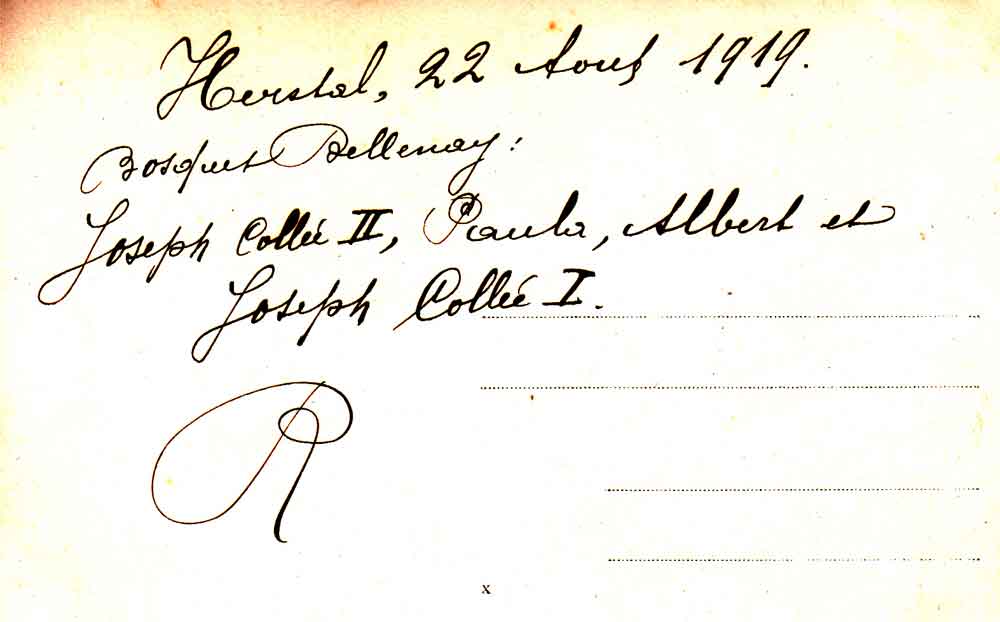 Herstal, 22 Aout 1919.
Bosquet Bellenay:
Joseph Collée II, Paula, Albert et
Joseph Collée I.
R
x